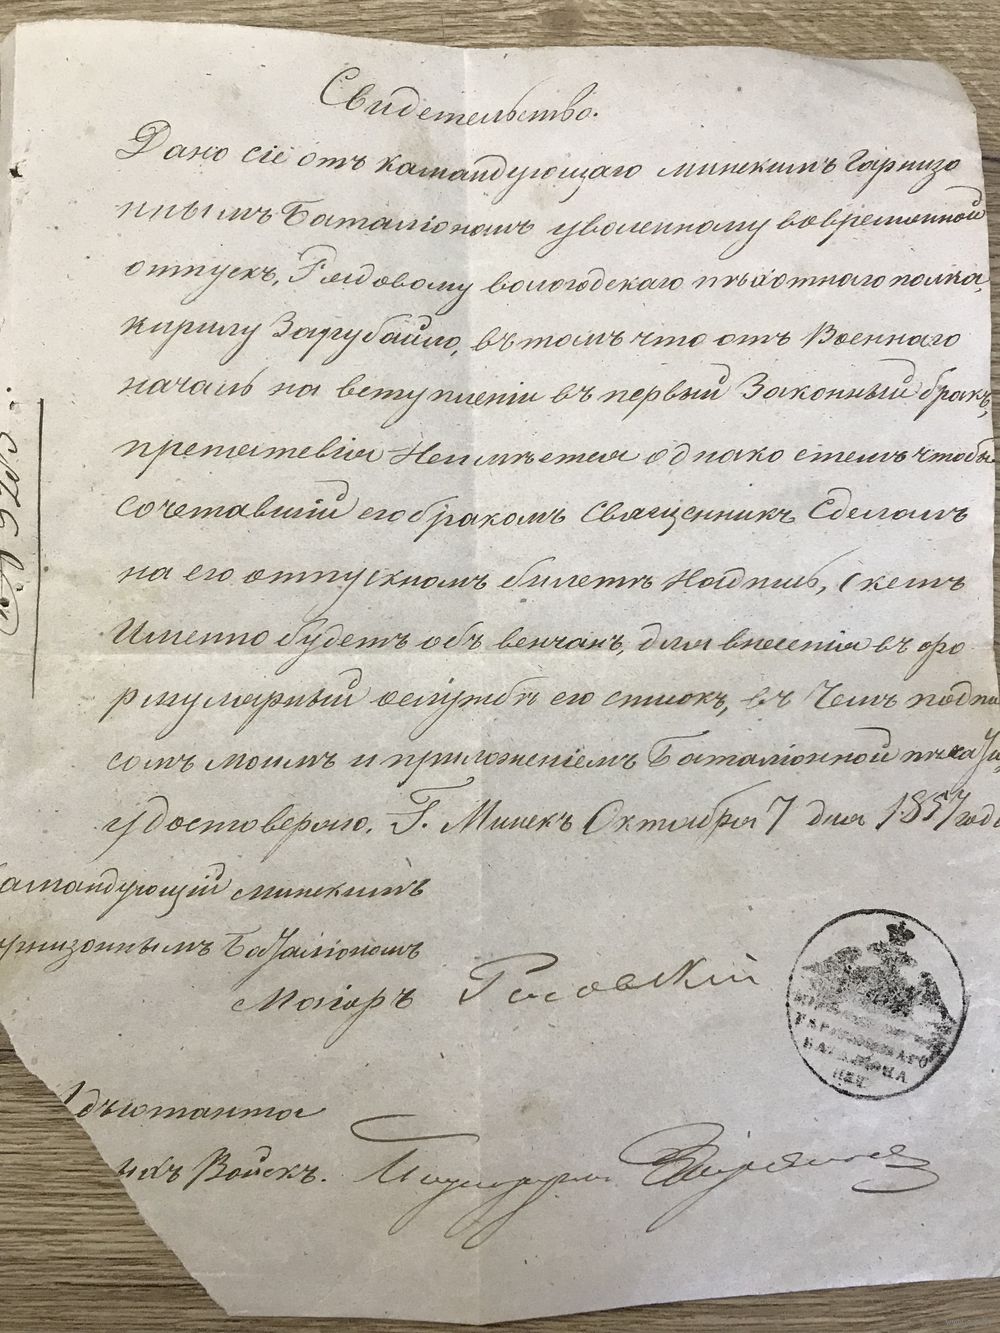 Свидетельство.
Дано сіе отъ камандующаго минскимъ Гарнизо
ннымъ Баталіономъ уволенному вовременной
отпускъ, Рядовому вологодскаго пѣхотнаго полка,
кирилу Зарубайло, вътомъ что отъ Военнаго
началь на вступленіи въ первый Законный бракъ,
препятсвія Неимѣется однако стемъ чтобы
сочетавшій его бракомъ Священникъ Сделалъ
на его отпускномъ билетѣ Надпись, Скемъ
Именно будетъ объ венчанъ, для внесенія въ фо
рмулярный ослужбѣ его списокъ, въ Чемъ подпи
сомъ моимъ и приложеніемъ Баталіонной печати
удостоверяю. Г. Минскъ Октября 7 дня 1857 года
Камандующій минскимъ
Гарнизоннымъ Баталіономъ
Маіоръ
ГАРНИЗОННАГО
БАТАЛІОНА
ПЕЧ
Адъютанта
Войскъ.